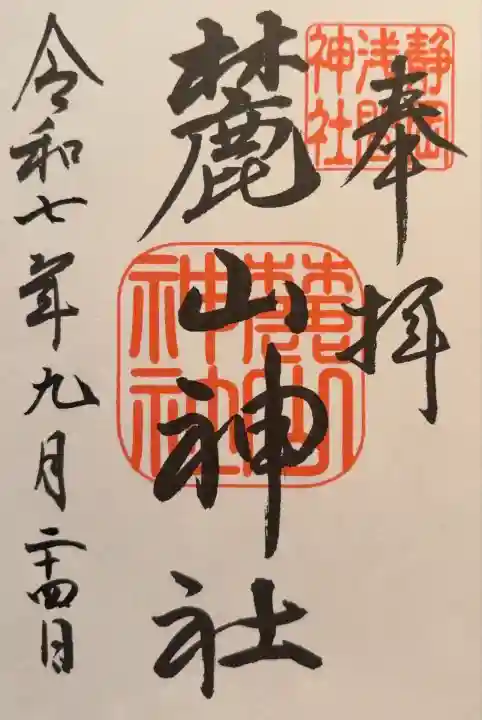 奉拝
静岡
浅間
神社
麓山神社
令和七年九月二十四日